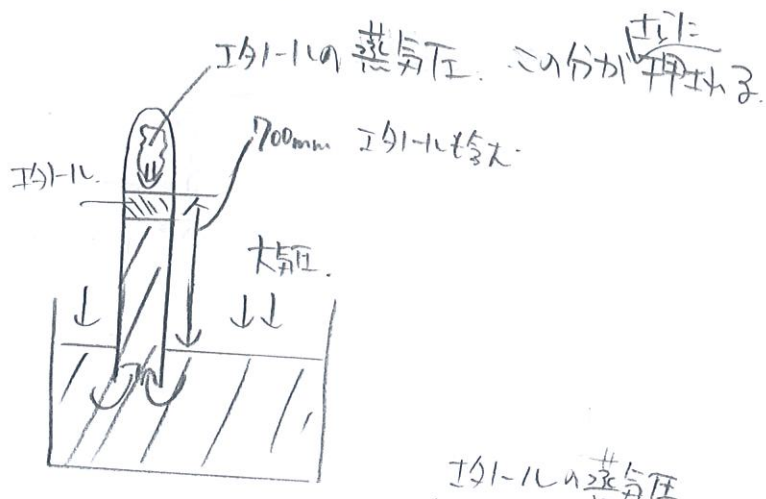 エタノールの蒸気圧. この分がさらに押される.
700mm エタノールも含む.
エタノール.
大気圧.
エタノールの蒸気圧